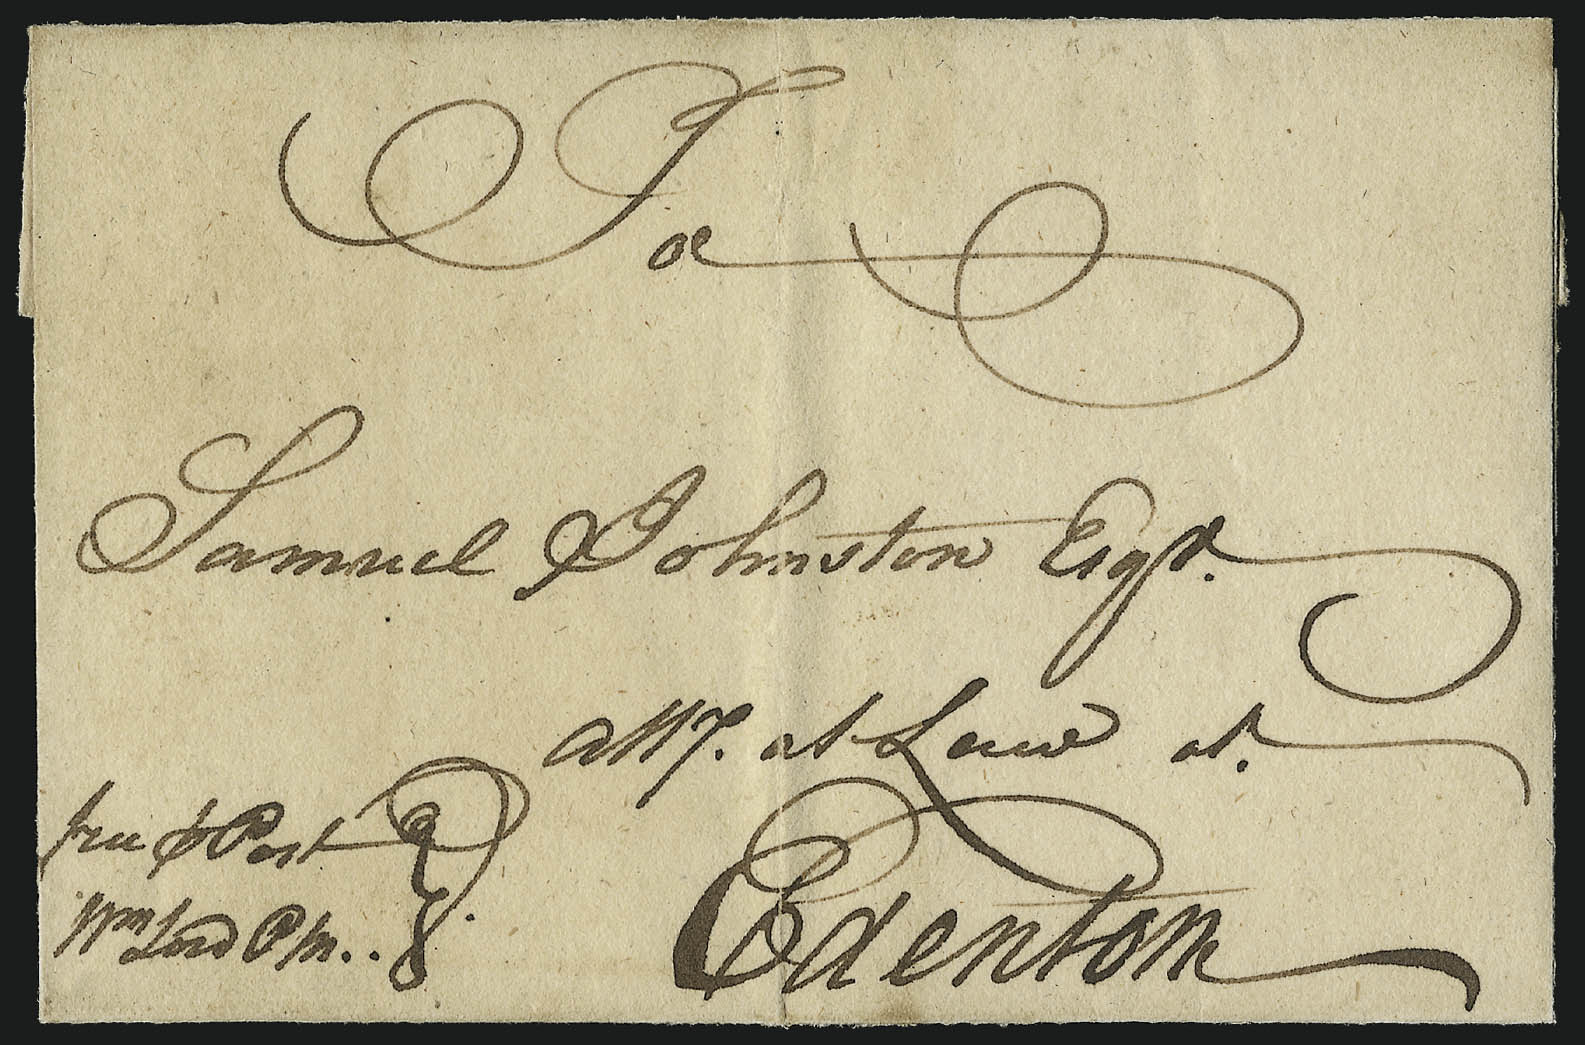 To
Samuel Johnston Esqr.
Atty. at Law at.
Edenton
free ⅌ Post
Wm Lord P M..